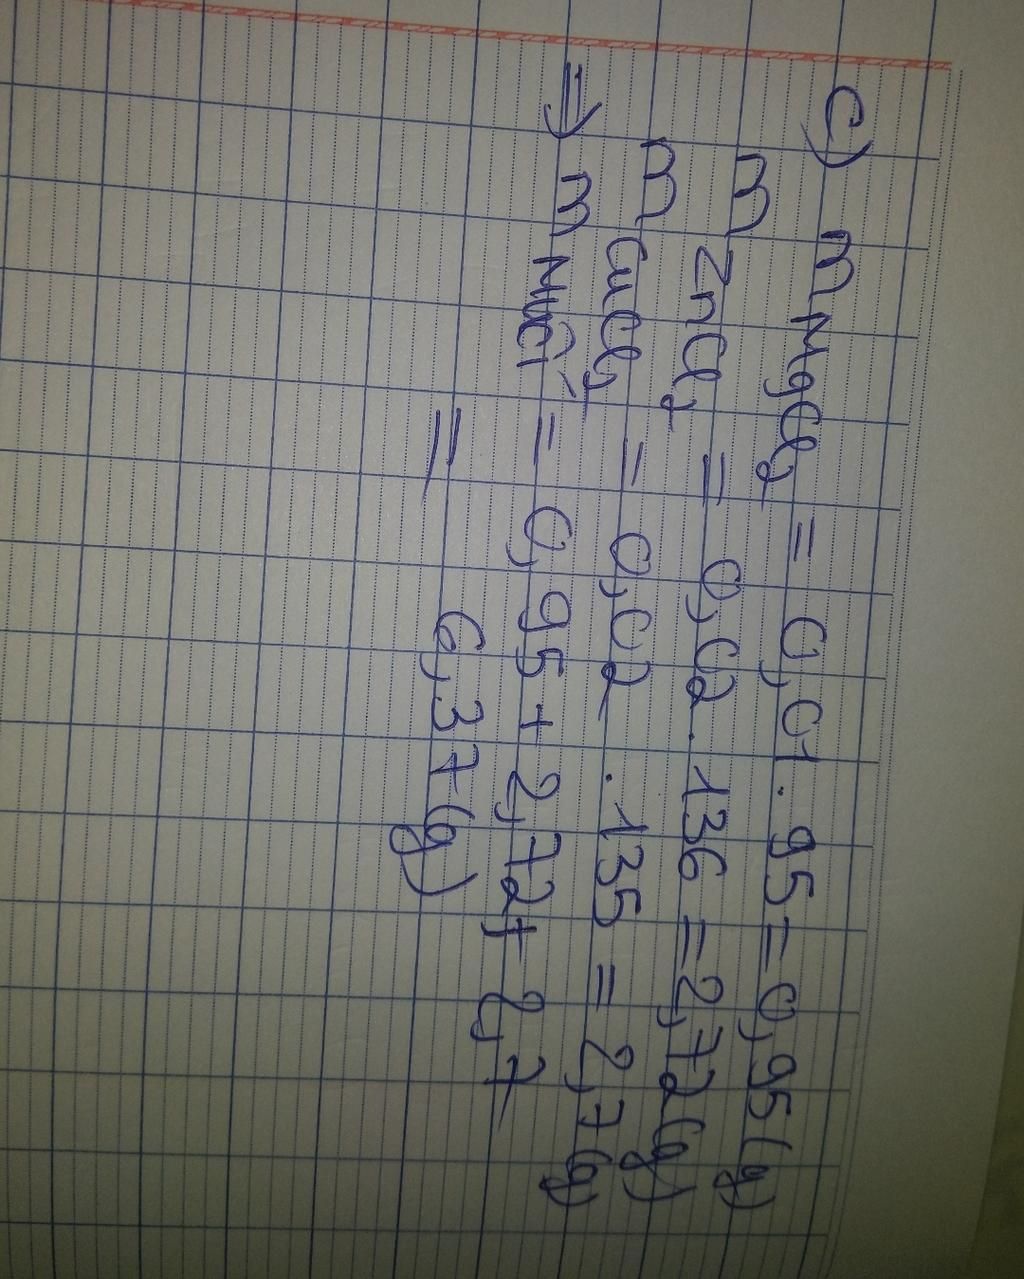 c) m MgCl2 = 0,01 . 95 = 0,95 (g)
m ZnCl2 = 0,02 . 136 = 2,72 (g)
m CuCl2 = 0,02 . 135 = 2,7 (g)
=> m Muối = 0,95 + 2,72 + 2,7
= 6,37 (g)